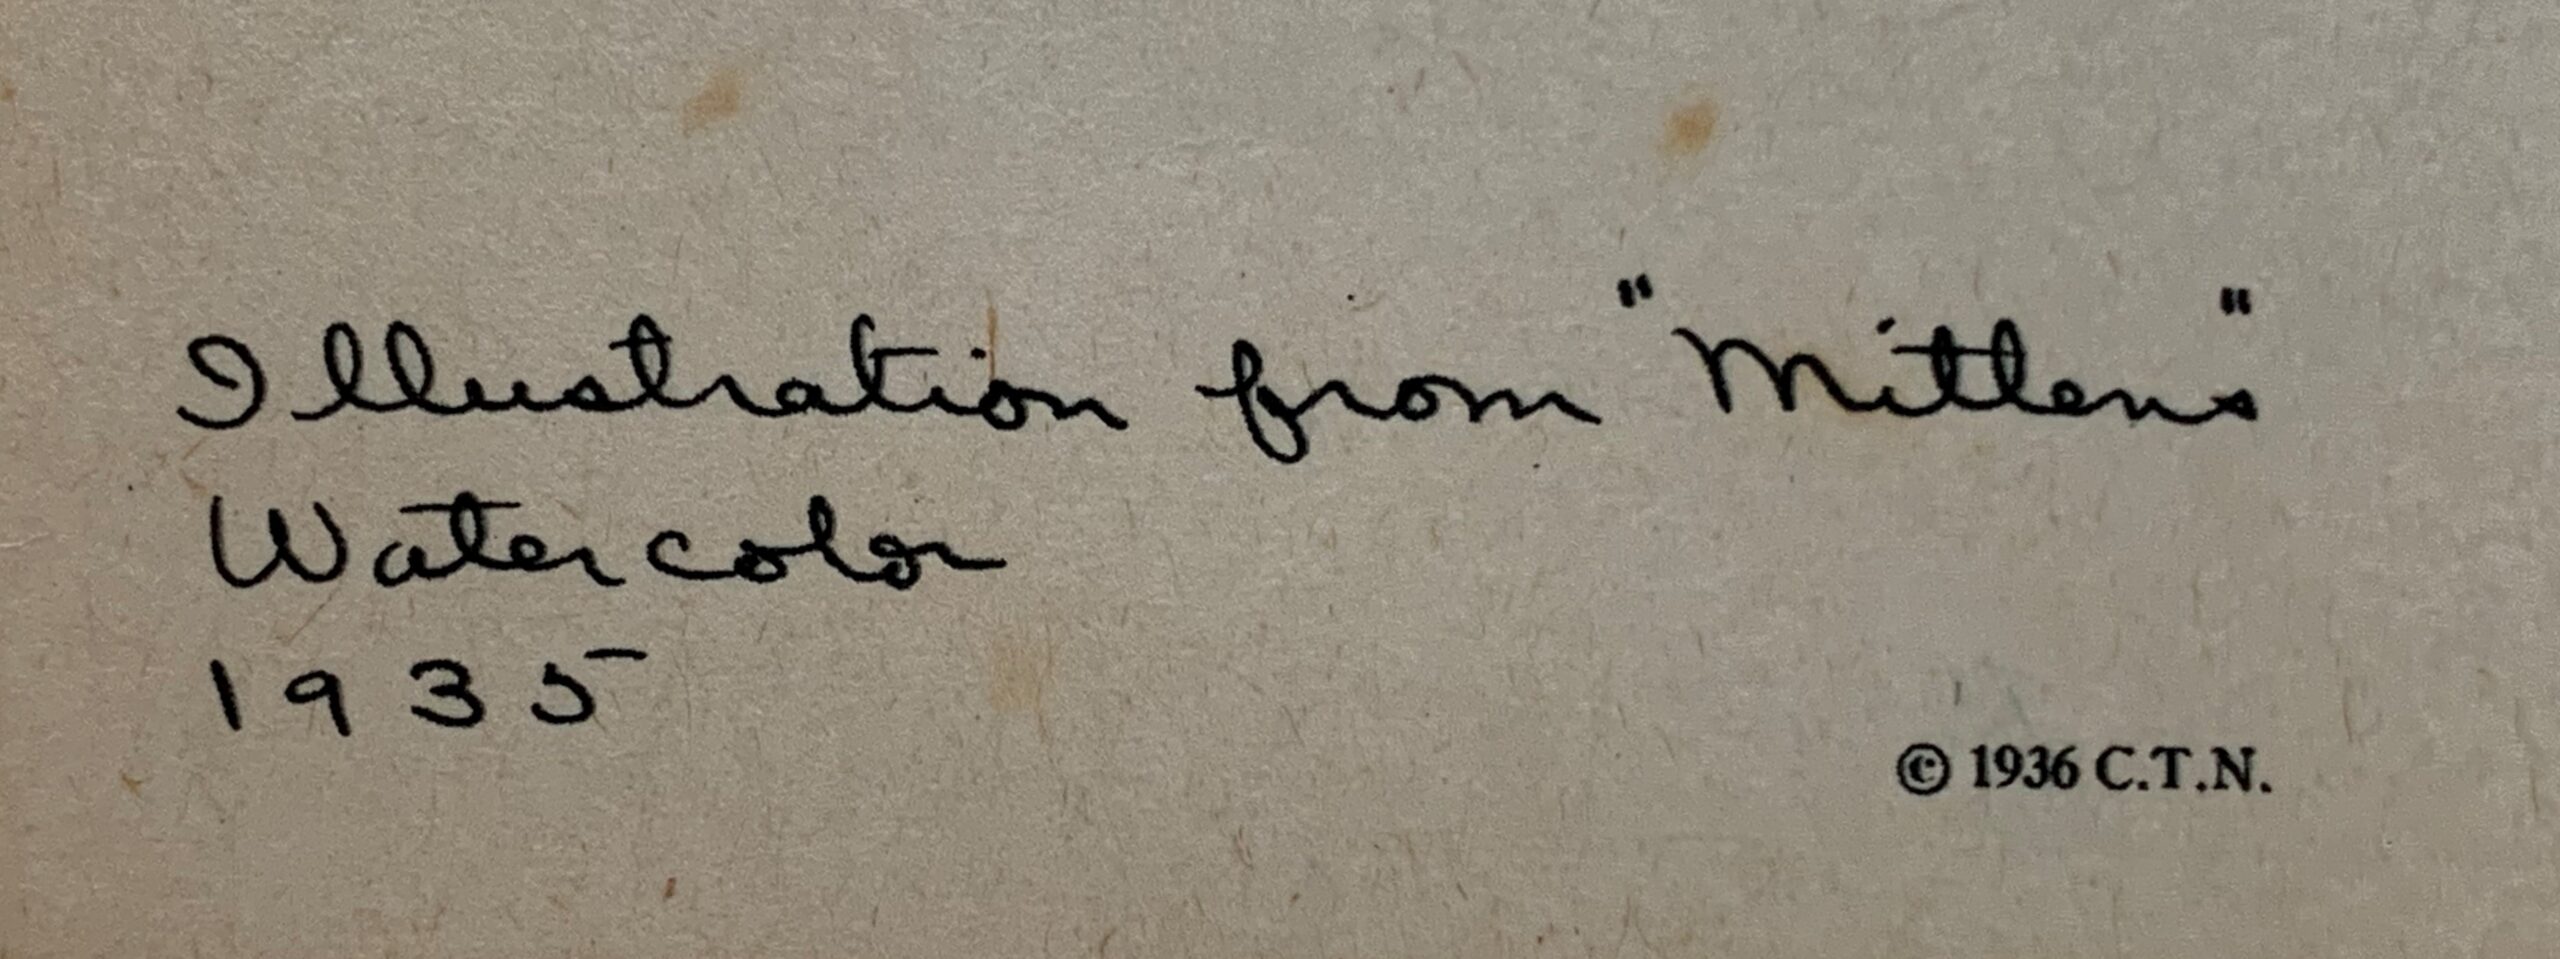 Illustration from "Mittens"
Watercolor
1935
© 1936 C.T.N.